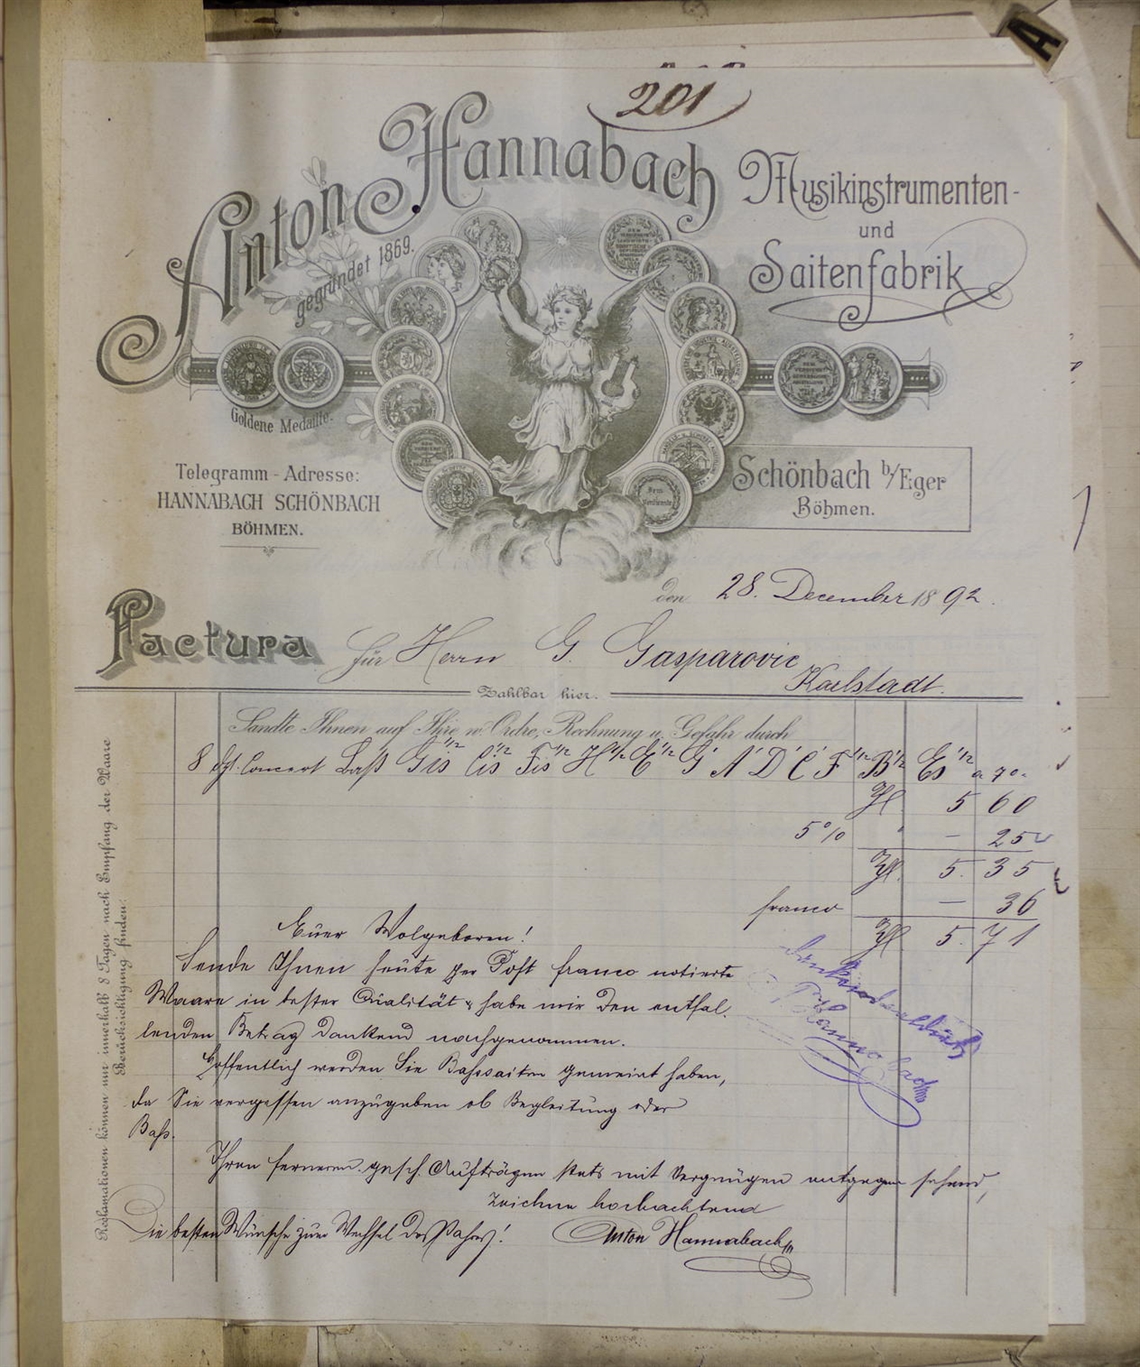 201
Anton Hannabach
gegründet 1869.
Musikinstrumenten-
und
Saitenfabrik
Goldene Medaille.
Telegramm-Adresse:
HANNABACH SCHÖNBACH
BÖHMEN.
Schönbach b/Eger
Böhmen.
den 28. December 1892.
Factura für Herrn G. Gasparovic
Karlstadt.
Zahlbar hier.
Sandte Ihnen auf Ihre w. Ordre, Rechnung u. Gefahr durch
8 Concert Bass Gis 1/2 Cis 1/2 Fis 1/2 H 1/2 E 1/2 G' A' D' C' F 1/2 B 1/2 Es 1/2 a 70.
Fl. 5 60
5% " — 25
Fl. 5. 35
franco — 36
Fl. 5. 71
Euer Wolgeboren!
Sende Ihnen heute per Post franco notierte
Waare in bester Qualität & habe mir den entfal-
lenden Betrag dankend nachgenommen.
Hoffentlich werden Sie Basssaiten gemeint haben,
da Sie vergessen anzugeben ob Begleitung oder
Bass.
Ihren ferneren gesch. Aufträgen stets mit Vergnügen entgegen sehend,
zeichne hochachtend
Die besten Wünsche zum Wechsel des Jahres! Anton Hannabach
Reklamationen können nur innerhalb 8 Tagen nach Empfang der Waare
Berücksichtigung finden.
Hannabach
A